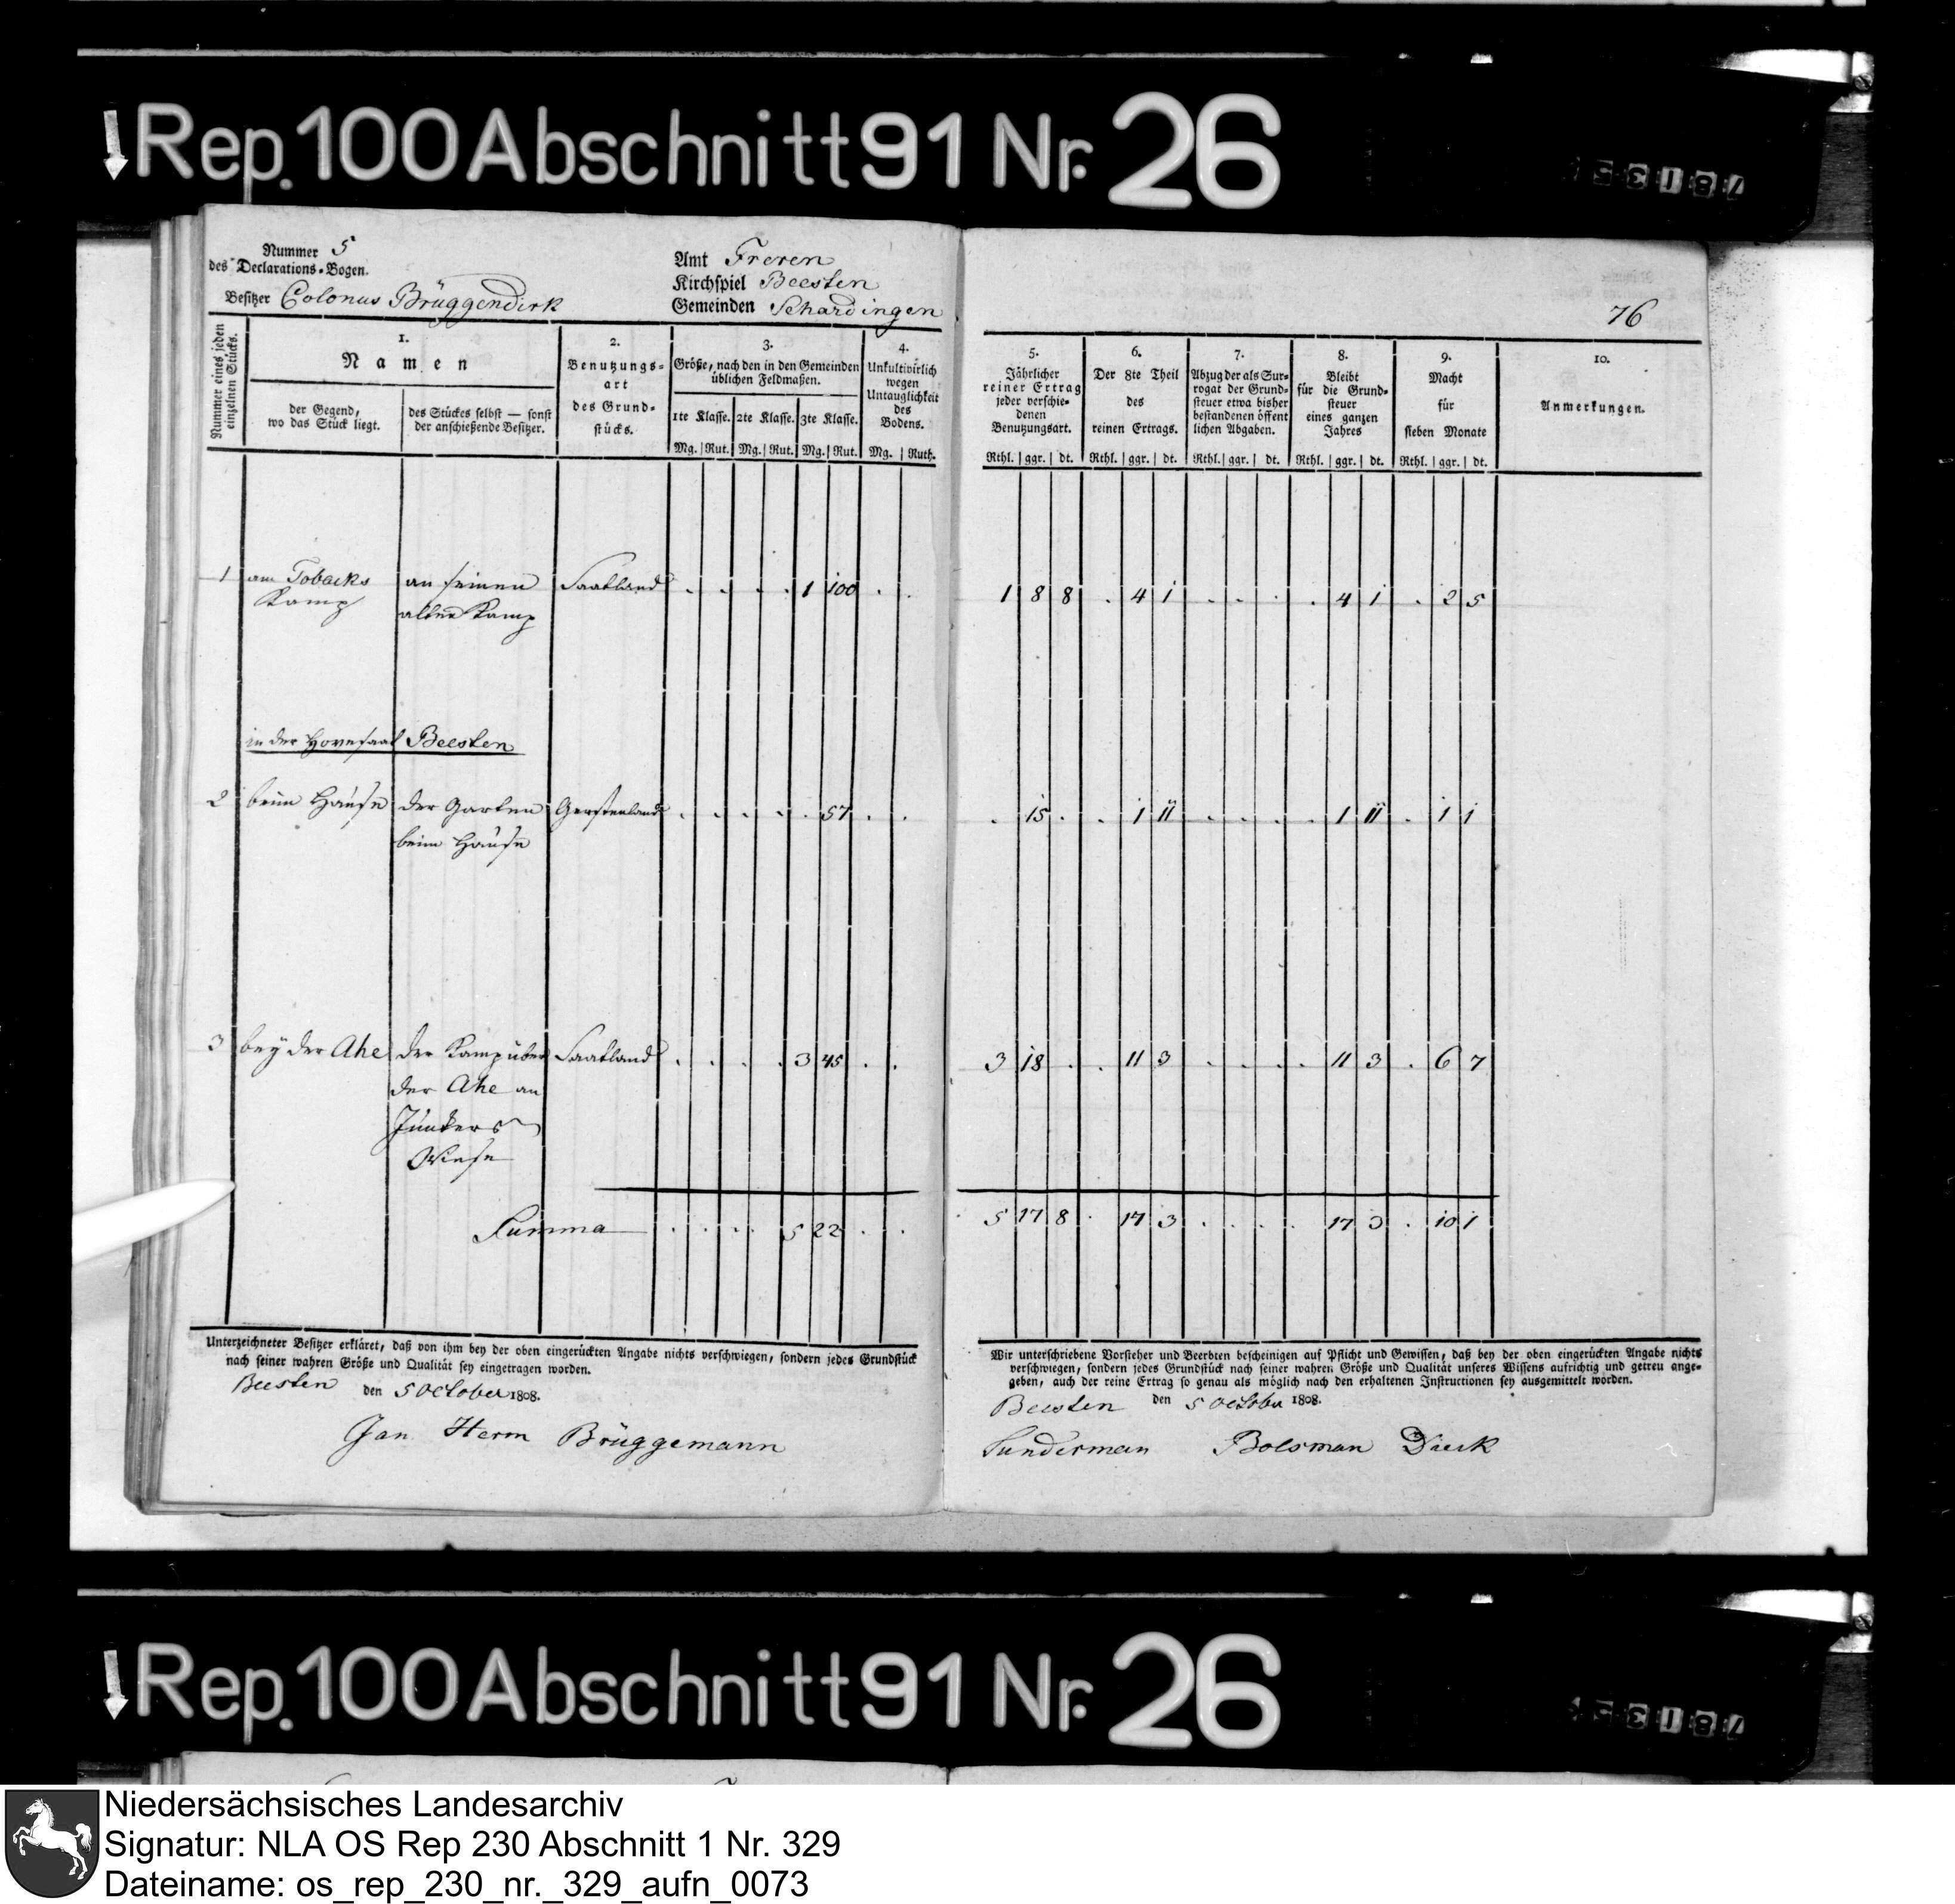 Rep. 100 Abschnitt 91 Nr. 26
Nummer 5
des Declarations-Bogen.
Besitzer Colonus Brüggendirk
Amt Freren
Kirchspiel Beesten
Gemeinden Schardingen
76
Nummer eines jeden
einzelnen Stücks.
1.
Namen
der Gegend,
wo das Stück liegt.
des Stückes selbst — sonst
der anschießende Besitzer.
2.
Benutzungs-
art
des Grund-
stücks.
3.
Größe, nach den in den Gemeinden
üblichen Feldmaßen.
1te Klasse. 2te Klasse. 3te Klasse.
Mg. Rut. Mg. Rut. Mg. Rut.
4.
Unkultivirlich
wegen
Untauglichkeit
des
Bodens.
Mg. Ruth.
5.
Jährlicher
reiner Ertrag
jeder verschie-
denen
Benutzungsart.
Rthl. ggr. dt.
6.
Der 8te Theil
des
reinen Ertrags.
Rthl. ggr. dt.
7.
Abzug der als Sur-
rogat der Grund-
steuer etwa bisher
bestandenen öffent
lichen Abgaben.
Rthl. ggr. dt.
8.
Bleibt
für die Grund-
steuer
eines ganzen
Jahres
Rthl. ggr. dt.
9.
Macht
für
sieben Monate
Rthl. ggr. dt.
10.
Anmerkungen.
1 am Tobacks an seinen Saatland . . . . 1 100 . . 1 8 8 . 4 1 . . . . 4 1 . 2 5
Kamp alten Kamp
in der Hovesaat Beesten
2 beim Hause der Garten Gerstenland . . . . . 57 . . . 15 . . 1 11 . . . . 1 11 . 1 1
beim Hause
3 bey der Ahe der Kamp über Saatland . . . . 3 45 . . 3 18 . . 11 3 . . . . 11 3 . 6 7
der Ahe an
Junkers
Wiese
Summa . . . . 5 22 . . 5 17 8 . 17 3 . . . . 17 3 . 10 1
Unterzeichneter Besitzer erkläret, daß von ihm bey der oben eingerückten Angabe nichts verschwiegen, sondern jedes Grundstück
nach seiner wahren Größe und Qualität sey eingetragen worden.
Beesten den 5 October 1808.
Jan Herm Brüggemann
Wir unterschriebene Vorsteher und Beerbten bescheinigen auf Pflicht und Gewissen, daß bey der oben eingerückten Angabe nichts
verschwiegen, sondern jedes Grundstück nach seiner wahren Größe und Qualität unseres Wissens aufrichtig und getreu ange-
geben, auch der reine Ertrag so genau als möglich nach den erhaltenen Instructionen sey ausgemittelt worden.
Beesten den 5 October 1808.
Sunderman Bolsman Dierk
Rep. 100 Abschnitt 91 Nr. 26
Niedersächsisches Landesarchiv
Signatur: NLA OS Rep 230 Abschnitt 1 Nr. 329
Dateiname: os_rep_230_nr._329_aufn_0073